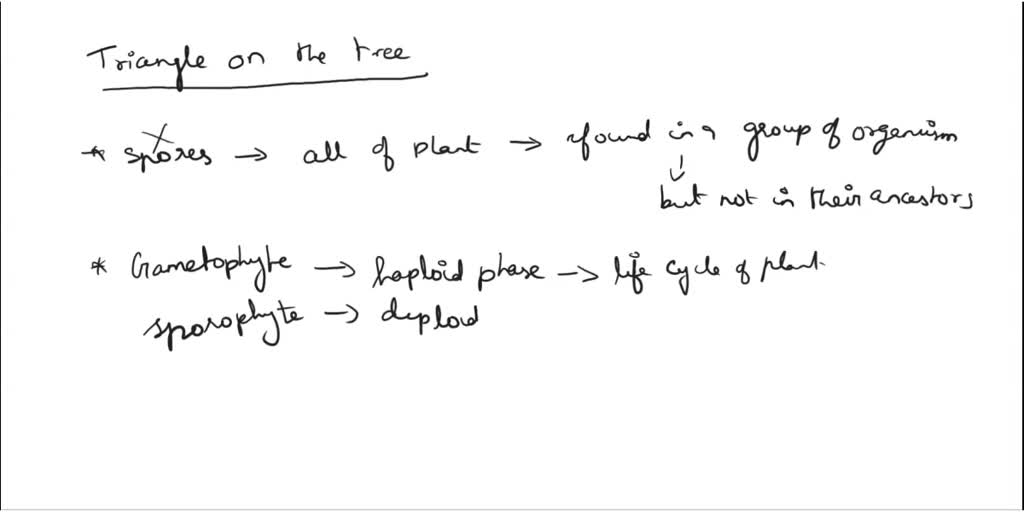 Triangle on the tree
* spores → all of plant → found in a group of organism
but not in their ancestors
* Gametophyte → haploid phase → life cycle of plant
sporophyte → diploid